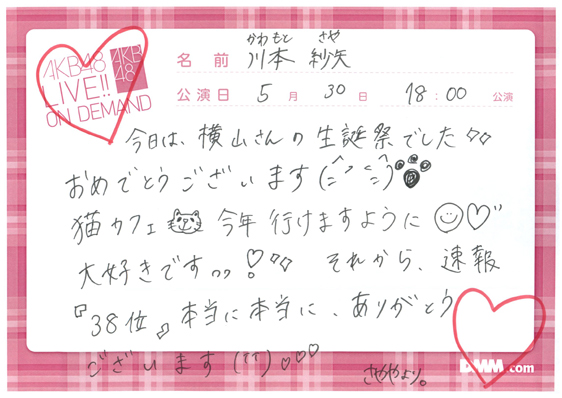 AKB48
LIVE!!
ON DEMAND
AKB
48
かわもと さや
名前 川本 紗矢
公演日 5月 30日 18:00 公演
今日は、横山さんの生誕祭でした
おめでとうございます
猫カフェ 今年行けますように
大好きですッッ それから、速報
『38位』本当に本当に、ありがとう
ございます
さややより。
DMM.com